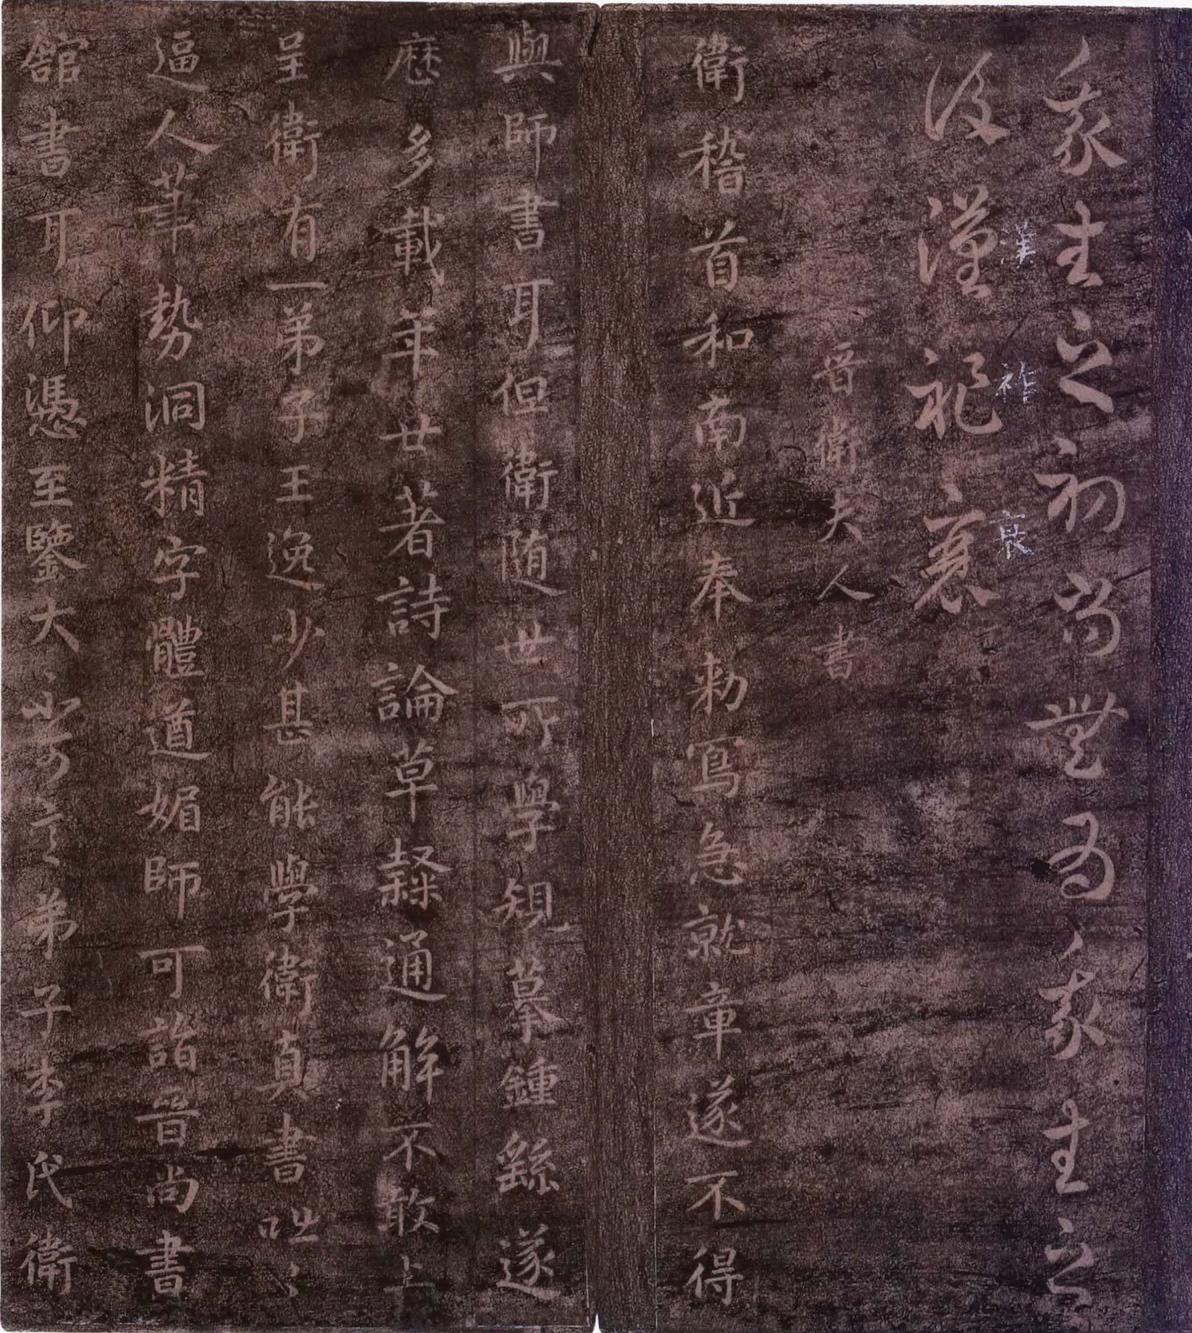 我生之初尚無為我生之
後漢祚衰
漢
祚
衰
晉衛夫人書
衛稽首和南近奉勅寫急就章遂不得
與師書耳但衛隨世所學規摹鍾繇遂
歷多載年廿著詩論草隸通解不敢上
呈衛有一弟子王逸少甚能學衛真書咄〻
逼人筆勢洞精字體遒媚師可詣晉尚書
館書耳仰憑至鑒大不可言弟子李氏衛